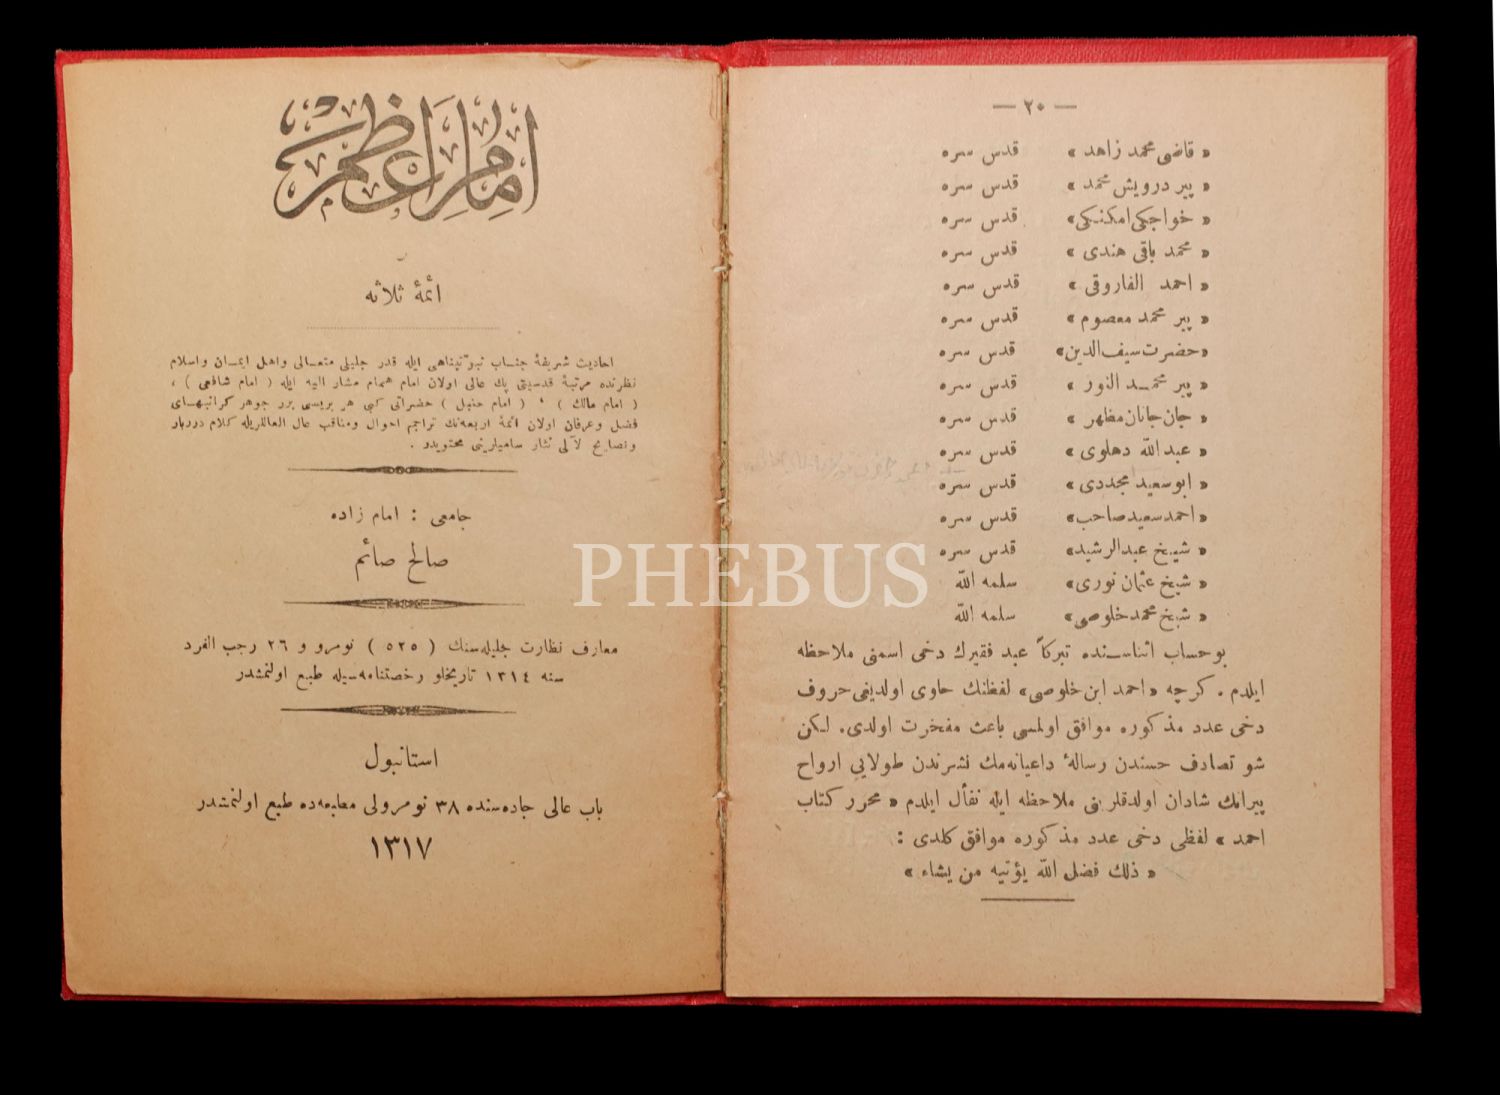 — ٢٠ —
« قاضی محمد زاهد » قدس سره
« پیر درویش محمد » قدس سره
« خواجکی امکنکی» قدس سره
« محمد باقی هندی » قدس سره
« احمد الفاروقی » قدس سره
« پیر محمد معصوم » قدس سره
«حضرت سیف‌الدین» قدس سره
« پیر محمد النور » قدس سره
« جان جانان مظهر » قدس سره
« عبد اللّه دهلوی » قدس سره
« ابو سعید مجددی » قدس سره
«احمد سعید صاحب» قدس سره
« شیخ عبد الرشید» قدس سره
« شیخ عثمان نوری» سلمه اللّه
« شیخ محمد خلوصی» سلمه اللّه
بو حساب اثناسنده تبرکاً عبد فقیرك دخی اسمنی ملاحظه
ایلدم . كرچه «احمد ابن خلوصی» لفظنك حاوی اولدیغی حروف
دخی عدد مذكوره موافق اولمسی باعث مفخرت اولدی. لكن
شو تصادف حسندن رسالۀ داعیانه‌مك نشرندن طولایی ارواح
پیرانك شادان اولدقلرینی ملاحظه ایله تفأل ایلدم « محرر كتاب
احمد » لفظی دخی عدد مذكوره موافق كلدی :
« ذلك فضل اللّه یؤتیه من یشاء »
امام اعظم
و
ائمۀ ثلاثه
احادیث شریفۀ جناب نبوّتپناهی ایله قدر جلیلی متعالی واهل ایمان واسلام
نظرنده مرتبۀ قدسیتی پك عالی اولان امام همام مشار الیه ایله ( امام شافعی ) ،
( امام مالك ) ، ( امام حنبل ) حضراتی كبی هر بریسی برر جوهر كرانبهای
فضل وعرفان اولان ائمۀ اربعه‌نك تراجم احوال ومناقب عال العاللریله كلام درربار
ونصایح لآلی نثار سامیلرینی محتویدر .
جامعی : امام زاده
صالح صائم
معارف نظارت جلیله‌سنك ( ٥٢٥ ) نومرو و ٢٦ رجب الفرد
سنه ١٣١٤ تاریخلو رخصتنامه‌سیله طبع اولنمشدر
استانبول
باب عالی جاده‌سنده ٣٨ نومرولی مطبعه‌ده طبع اولنمشدر
١٣١٧
PHEBUS